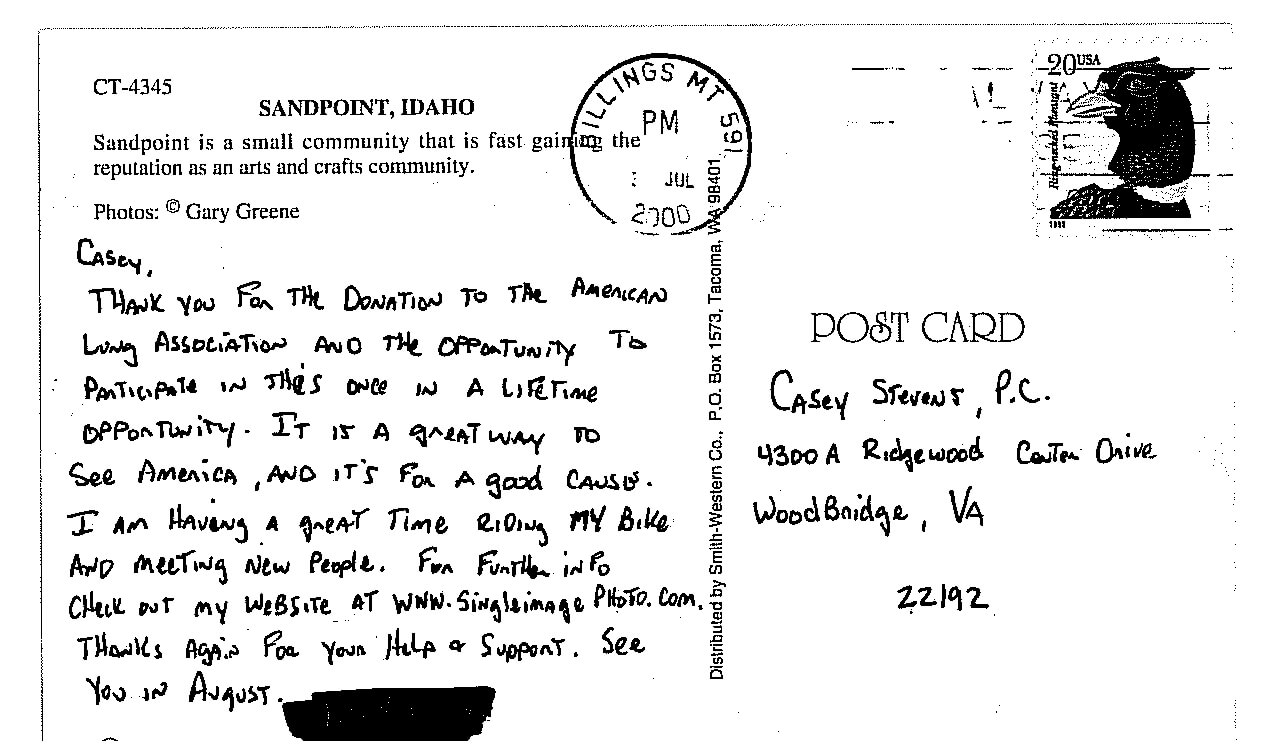 CT-4345
SANDPOINT, IDAHO
Sandpoint is a small community that is fast gaining the
reputation as an arts and crafts community.
Photos: © Gary Greene
BILLINGS MT 591
PM
JUL
2000
20 USA
Ring-necked Pheasant
Casey,
THANK YOU FOR THE DONATION TO THE AMERICAN
LUNG ASSOCIATION AND THE OPPORTUNITY TO
PARTICIPATE IN THIS ONCE IN A LIFETIME
OPPORTUNITY. IT IS A GREAT WAY TO
SEE AMERICA, AND IT'S FOR A good CAUSE.
I AM HAVING A GREAT TIME RIDING MY BIKE
AND MEETING NEW PEOPLE. FOR FURTHER INFO
CHECK OUT MY WEBSITE AT WWW.SingleimagePHOTO.COM.
THANKS AGAIN FOR YOUR HELP & SUPPORT. SEE
YOU IN AUGUST.
Distributed by Smith-Western Co., P.O. Box 1573, Tacoma, WA 98401
POST CARD
CASEY STEVENS, P.C.
4300 A Ridgewood Center Drive
WoodBridge, VA
22192